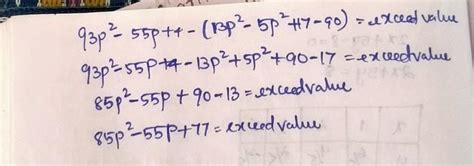 93p²- 55p+4 - (13p²- 5p²+17-90) = exceed value
93p²-55p+4 - 13p²+5p²+90-17 = exceed value
85p²-55p + 90-13 = exceed value
85p²-55p+77 = exceed value